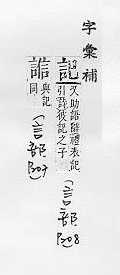 字彙補
記
又助語辭禮表記
引詩彼記之子
(言部
P208
與記
同
(言部
P207